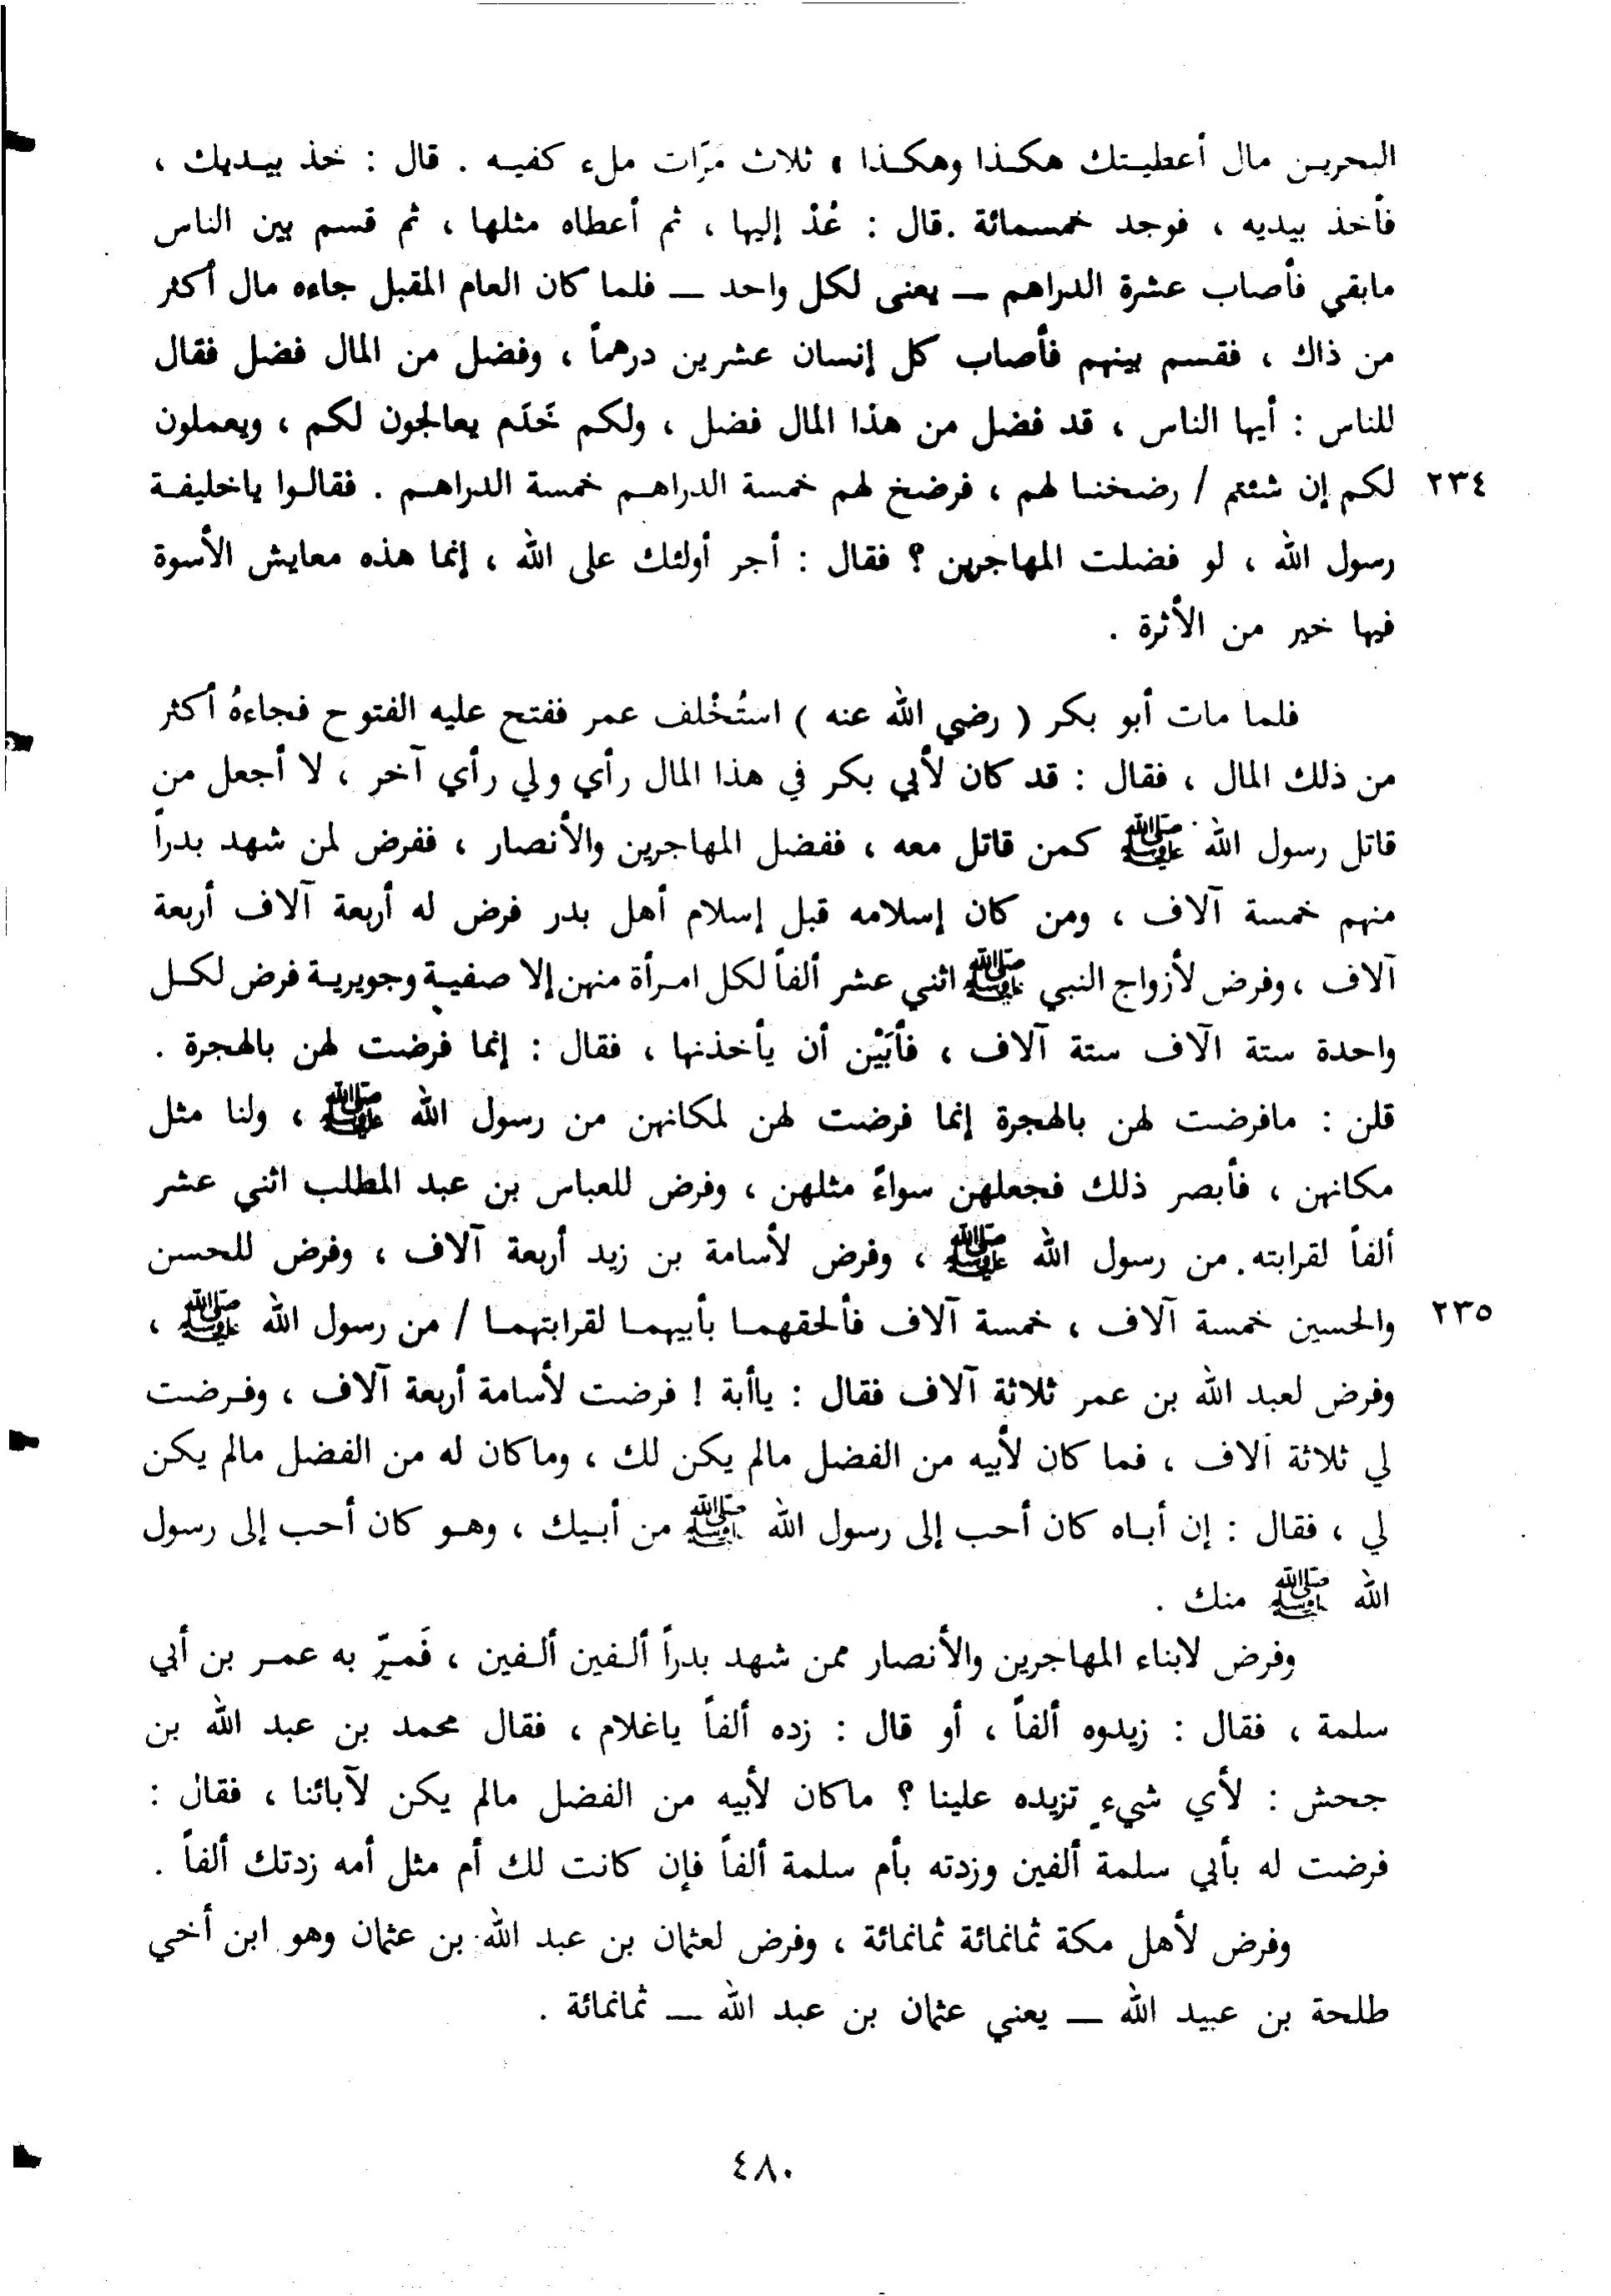 البحرين مال أعطيتك هكذا وهكذا ، ثلاث مرّات ملء كفيه . قال : خذ بيديك ،
فأخذ بيديه ، فوجد خمسمائة .قال : عُدْ إليها ، ثم أعطاه مثلها ، ثم قسم بين الناس
مابقي فأصاب عشرة الدراهم ــ يعنى لكل واحد ــ فلما كان العام المقبل جاءه مال أكثر
من ذاك ، فقسم بينهم فأصاب كل إنسان عشرين درهماً ، وفضل من المال فضل فقال
للناس : أيها الناس ، قد فضل من هذا المال فضل ، ولكم خَدَم يعالجون لكم ، ويعملون
٢٣٤ لكم إن شئتم / رضخنا لهم ، فرضخ لهم خمسة الدراهم خمسة الدراهم . فقالوا ياخليفة
رسول الله ، لو فضلت المهاجرين ؟ فقال : أجر أولئك على الله ، إنما هذه معايش الأسوة
فيها خير من الأثرة .
فلما مات أبو بكر ( رضي الله عنه ) استُخْلف عمر ففتح عليه الفتوح فجاءهُ أكثر
من ذلك المال ، فقال : قد كان لأبي بكر في هذا المال رأي ولي رأي آخر ، لا أجعل من
قاتل رسول الله ﷺ كمن قاتل معه ، ففضل المهاجرين والأنصار ، ففرض لمن شهد بدراً
منهم خمسة آلاف ، ومن كان إسلامه قبل إسلام أهل بدر فرض له أربعة آلاف أربعة
آلاف ، وفرض لأزواج النبي ﷺ اثني عشر ألفاً لكل امرأة منهن إلا صفية وجويرية فرض لكل
واحدة ستة آلاف ستة آلاف ، فأَبَيْن أن يأخذنها ، فقال : إنما فرضت لهن بالهجرة .
قلن : مافرضت لهن بالهجرة إنما فرضت لهن لمكانهن من رسول الله ﷺ ، ولنا مثل
مكانهن ، فأبصر ذلك فجعلهن سواءً مثلهن ، وفرض للعباس بن عبد المطلب اثني عشر
ألفاً لقرابته من رسول الله ﷺ ، وفرض لأسامة بن زيد أربعة آلاف ، وفرض للحسن
٢٣٥ والحسين خمسة آلاف ، خمسة آلاف فألحقهما بأبيهما لقرابتهما / من رسول الله ﷺ ،
وفرض لعبد الله بن عمر ثلاثة آلاف فقال : ياأبة ! فرضت لأسامة أربعة آلاف ، وفرضت
لي ثلاثة آلاف ، فما كان لأبيه من الفضل مالم يكن لك ، وماكان له من الفضل مالم يكن
لي ، فقال : إن أباه كان أحب إلى رسول الله ﷺ من أبيك ، وهو كان أحب إلى رسول
الله ﷺ منك .
وفرض لابناء المهاجرين والأنصار ممن شهد بدراً ألفين ألفين ، فَمرّ به عمر بن أبي
سلمة ، فقال : زيدوه ألفاً ، أو قال : زده ألفاً ياغلام ، فقال محمد بن عبد الله بن
جحش : لأي شيءٍ تزيده علينا ؟ ماكان لأبيه من الفضل مالم يكن لآبائنا ، فقال :
فرضت له بأبي سلمة ألفين وزدته بأم سلمة ألفاً فإن كانت لك أم مثل أمه زدتك ألفاً .
وفرض لأهل مكة ثمانمائة ثمانمائة ، وفرض لعثمان بن عبد الله بن عثمان وهو ابن أخي
طلحة بن عبيد الله ــ يعني عثمان بن عبد الله ــ ثمانمائة .
٤٨٠